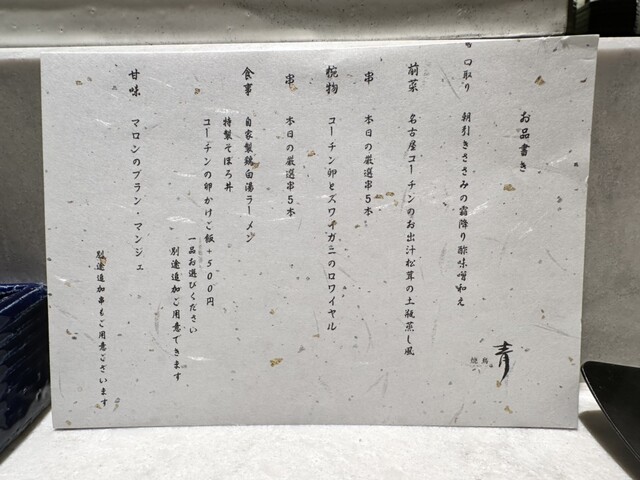 お品書き
焼鳥 青
口取り 朝引きささみの霜降り酢味噌和え
前菜 名古屋コーチンのお出汁松茸の土瓶蒸し風
串 本日の厳選串5本
椀物 コーチン卵とズワイガニのロワイヤル
串 本日の厳選串5本
食事 自家製鶏白湯ラーメン
特製そぼろ丼
コーチンの卵かけご飯+500円
一品お選びください
別途追加ご用意できます
甘味 マロンのブラン・マンジェ
別途追加串もご用意ございます